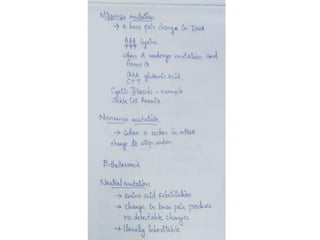 Missense mutation
→ a base pair change in DNA
AAA lysine
TTT
when A undergo mutation and
forms G
GAA glutamic acid
CTT
Cystic Fibrosis - example
Sickle Cell Anemia
Nonsense mutation
→ when a codon in mRNA
change to stop codon
β thallesemia
Neutral mutation
→ amino acid substitution
→ change in base pair produce
no detectable changes
→ Usually inheritable